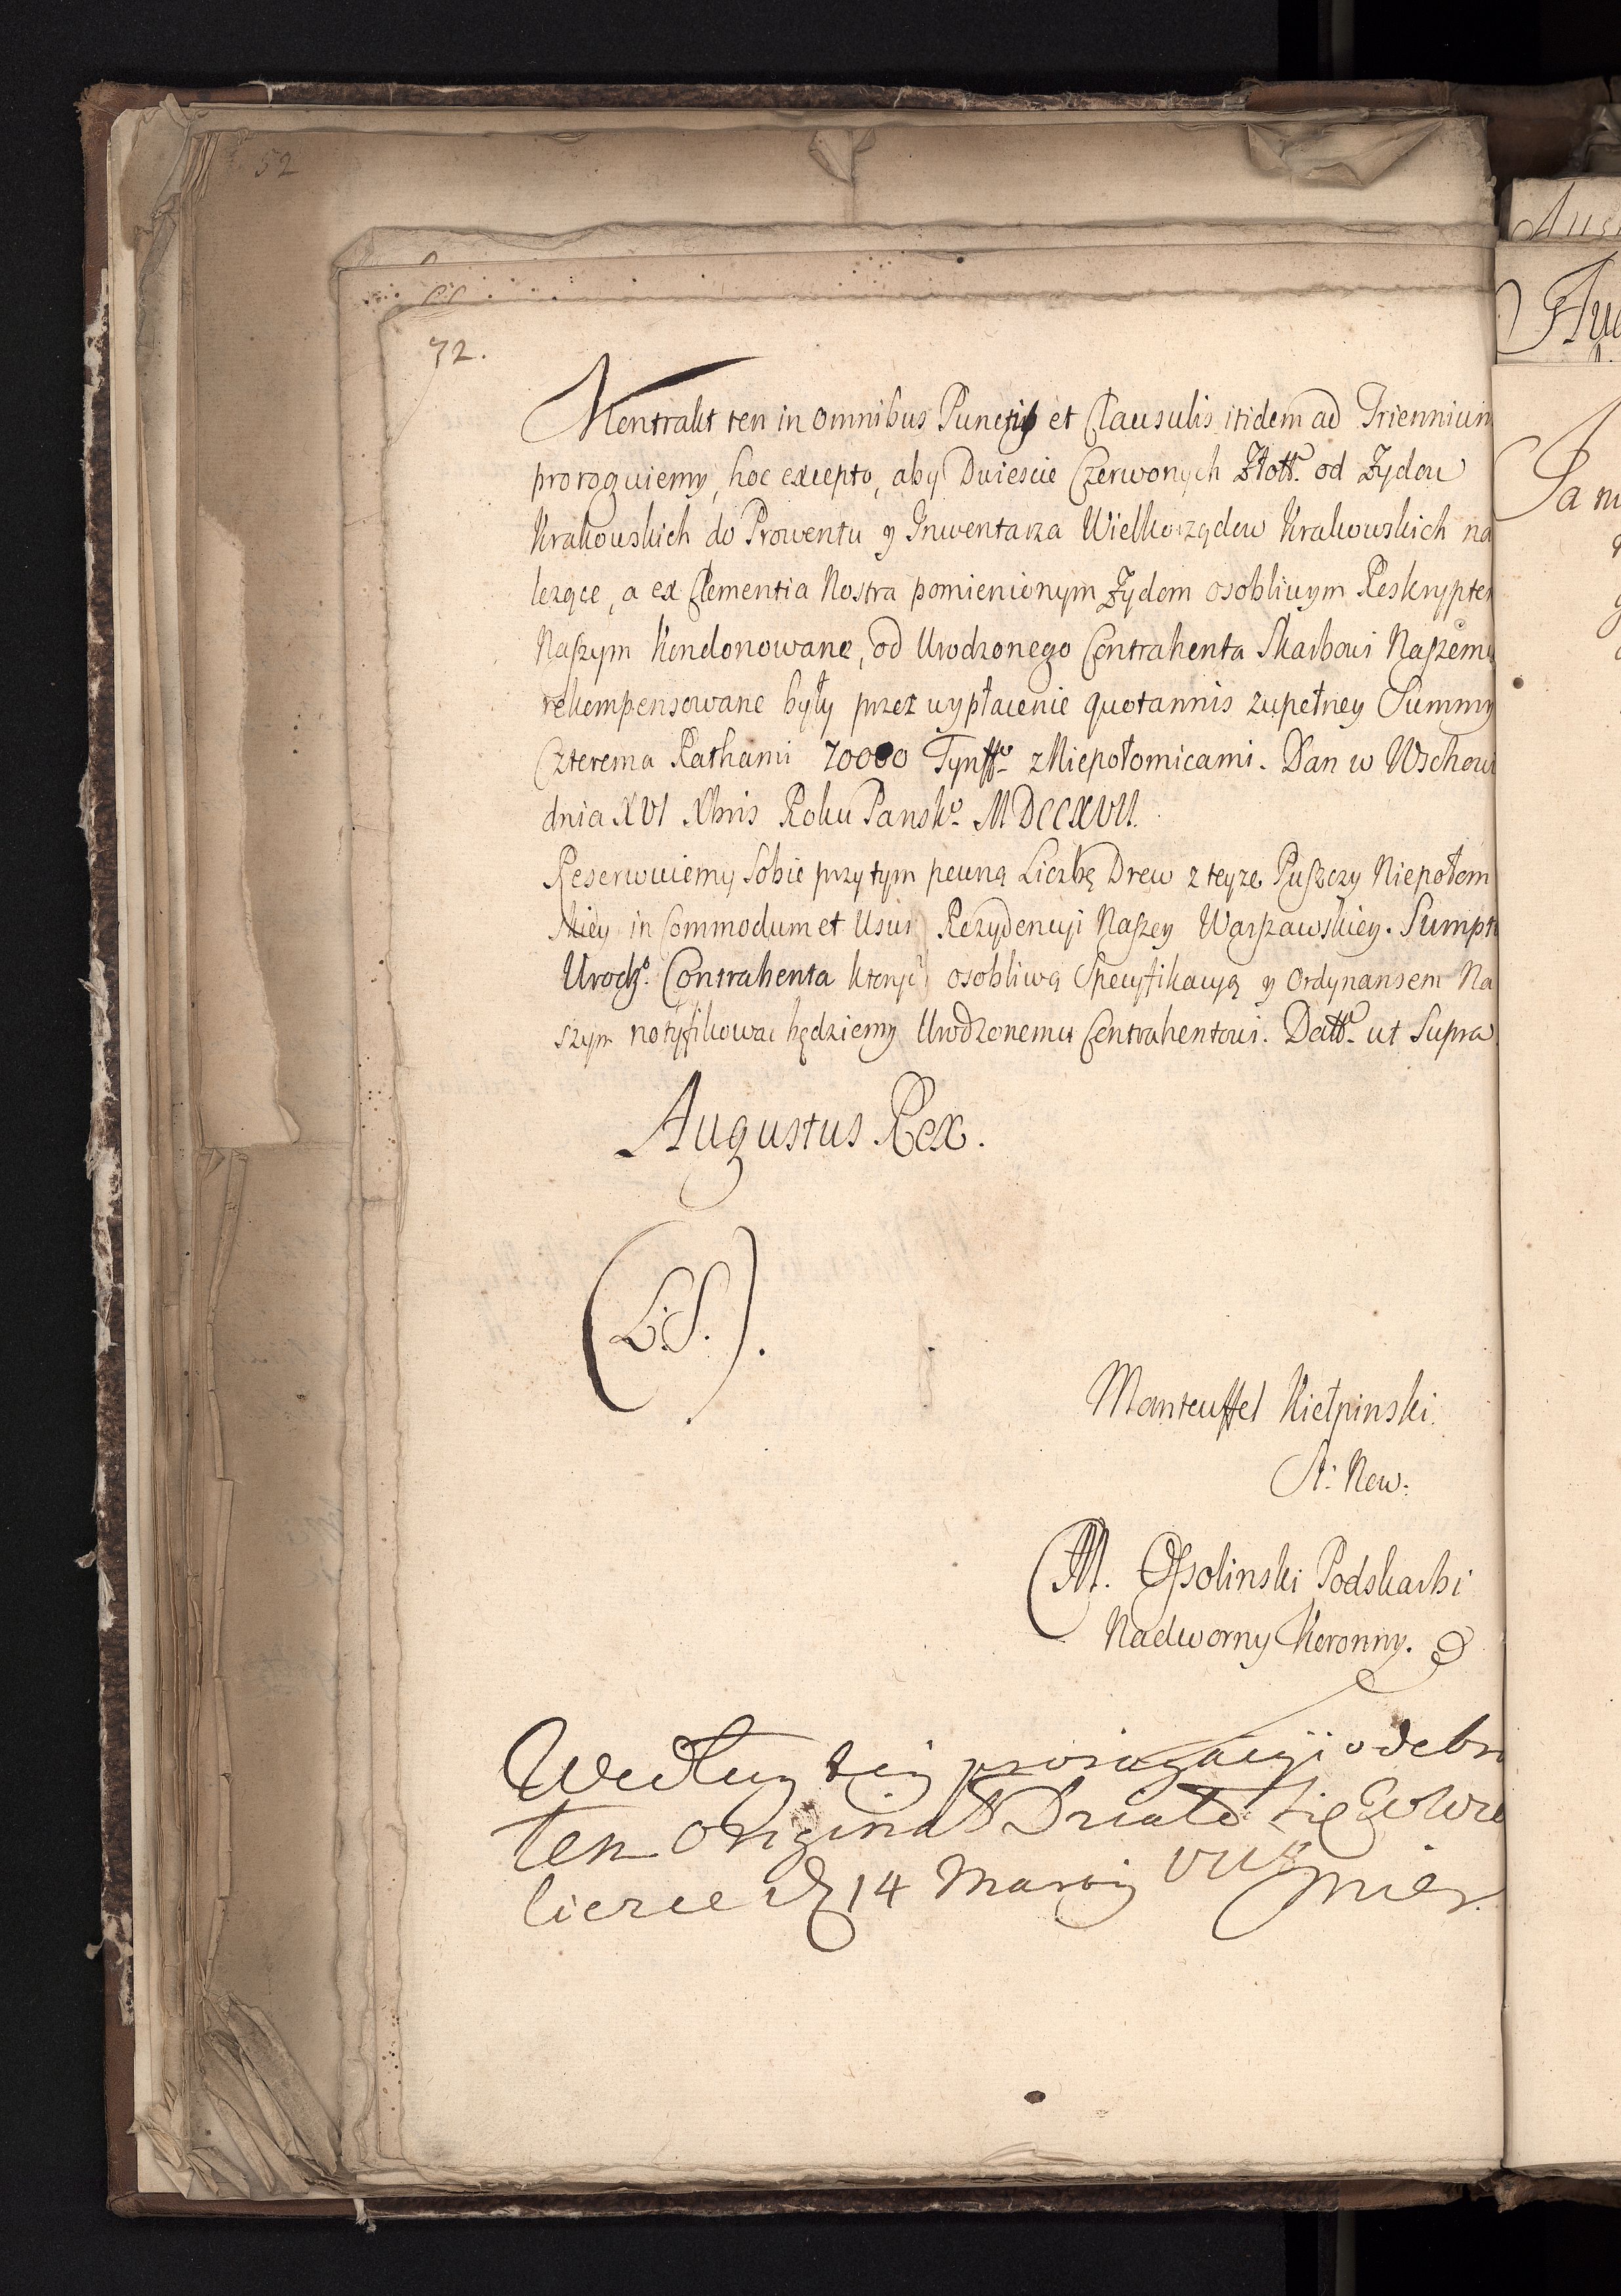 52
72.
Kontrakt ten in omnibus Punctis et Clausulis itidem ad Triennium
proroguiemy, hoc excepto, aby Dwiescie Czerwonych Złott. od Żydow
Krakowskich do Prowentu y Inwentarza Wielkorządow Krakowskich na
lezące, a ex Clementia Nostra pomienionym Żydom osobliwym Reskryptem
Naszym kondonowane, od Urodzonego Contrahenta Skarbowi Naszemu
rekompensowane były przez wypłacenie quotannis zupełney Summy
Czterema Rathami 70000 Tynffo. z Niepołomicami. Dan w Wschowie
dnia XVI Xbris Roku Pansko. MDCCXVII.
Reserwuiemy Sobie przy tym pewną Liczbę Drew z teyze Puszczy Niepołom
skiey in Commodum et Usus Rezydencyi Naszey Warszawskiey. Sumptu
Urodzo. Contrahenta ktorych osobliwą Specyfikacyą y Ordynansem Na
szym notyfikowac będziemy Urodzonemu Contrahentowi. Datt. ut Supra
Augustus Rex.
(L:S.).
Manteuffel Kiełpinski
St: Now:
M. Ossolinski Podskarbi
Nadworny Koronny.
Według tey prorogacyi odebr
ten originał Działo się w
14 Marcy
Aug
Ja